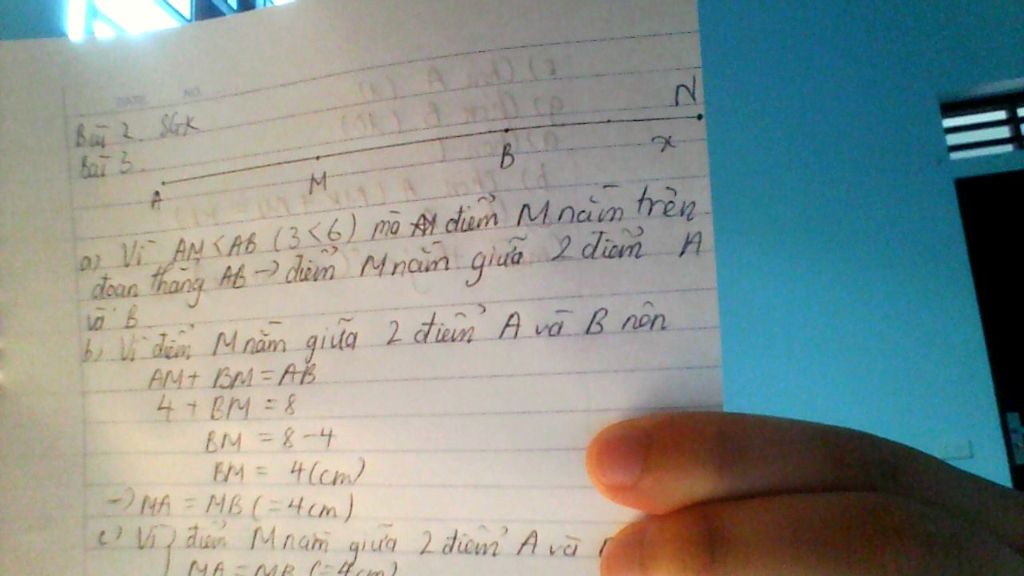 DATE NO.
Bài 2. SGK
Bài 3.
A M B x N
a) Vì AM < AB (3 < 6) mà điểm M nằm trên
đoạn thẳng AB → điểm M nằm giữa 2 điểm A
và B
b) Vì điểm M nằm giữa 2 điểm A và B nên
AM + BM = AB
4 + BM = 8
BM = 8 - 4
BM = 4(cm)
→ MA = MB (= 4cm)
c) Vì điểm M nằm giữa 2 điểm A và
MA = MB (= 4cm)